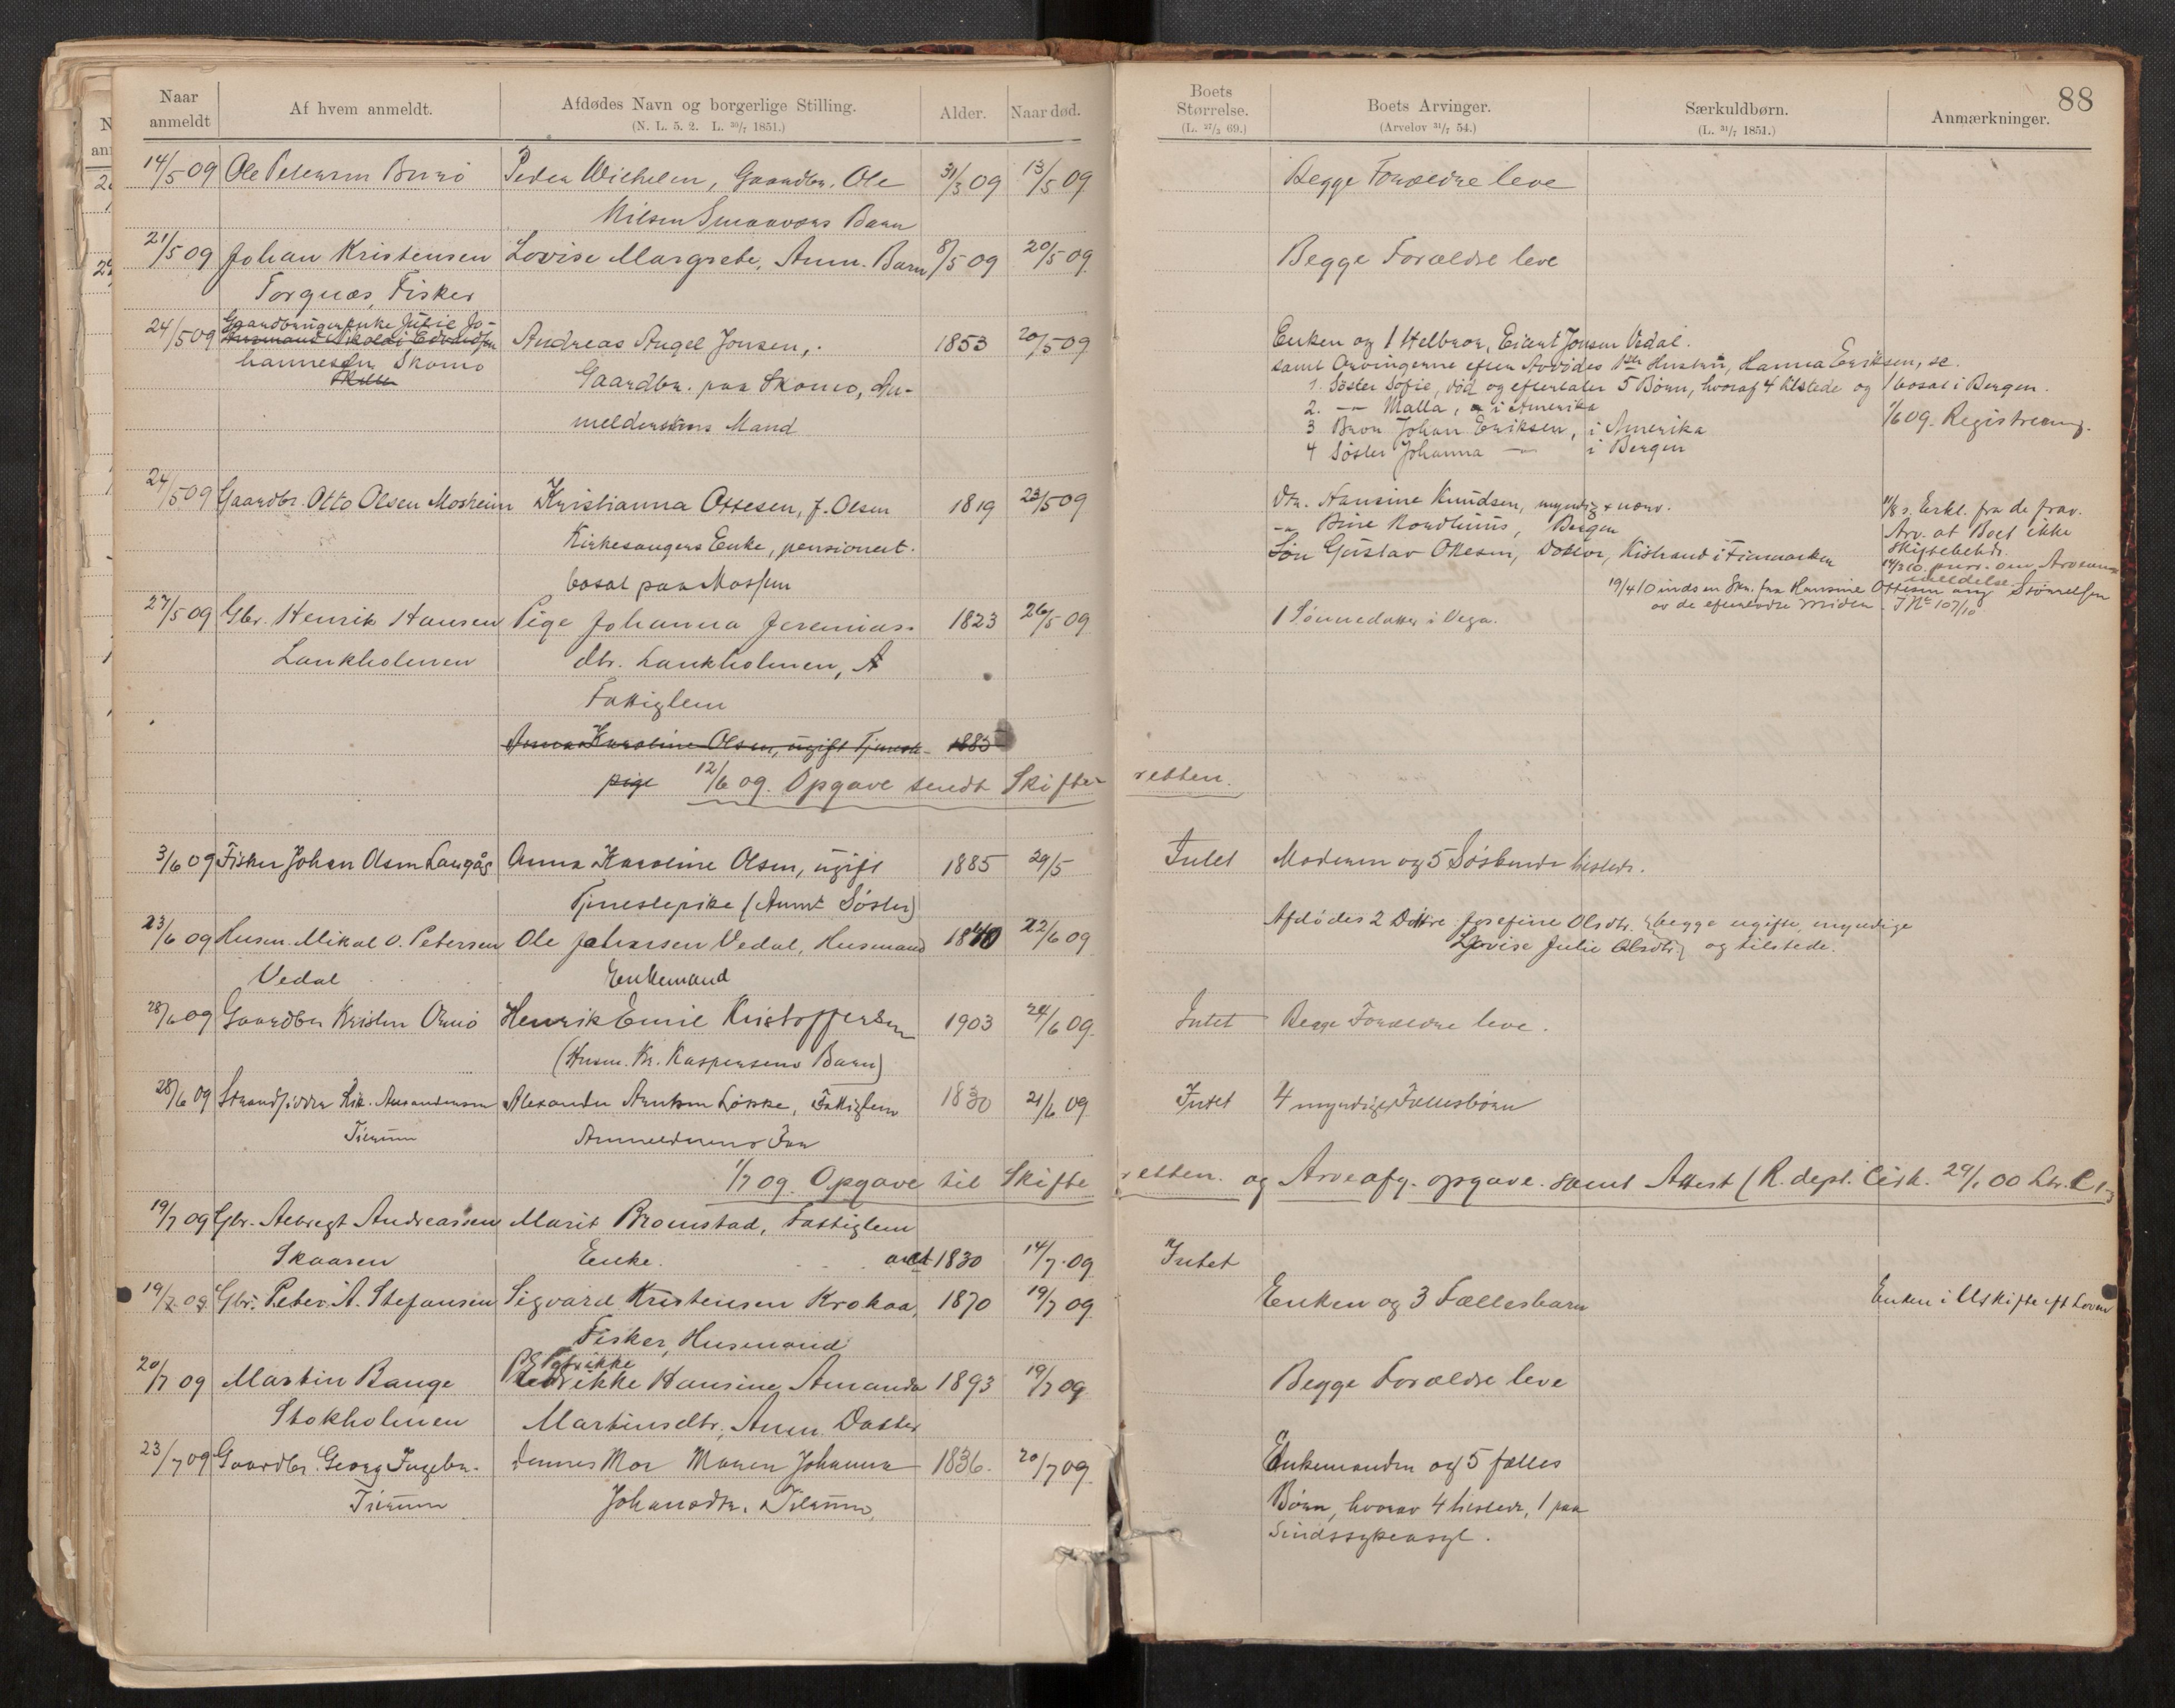 88
Naar anmeldt
Af hvem anmeldt.
Afdødes Navn og borgerlige Stilling.
(N. L. 5. 2. L. 30/7 1851.)
Alder.
Naar død.
Boets Størrelse.
(L. 27/3 69.)
Boets Arvinger.
(Arvelov 31/7 54.)
Særkuldbørn.
(L. 31/7 1851.)
Anmærkninger.
14/5 09 Ole Petersen Burø Peder Wilhelm, Gaardbr. Ole 31/3 09 13/5 09 Begge Forældre leve
Nilsen Smaaværs Barn
21/5 09 Johan Kristensen Lovise Margrete, Anm. Barn 8/5 09 20/5 09 Begge Forældre leve
Torgnæs, Fisker
Gaardbrugerenke Julie Jo-
24/5 09 Husmand Nikolai Edvardsen Andreas Angel Jonsen, 1853 20/5 09 Enken og 1 Helbror, Ejert Jonsen Vedal.
hannesen Skomo Gaardbr. paa Skomo, An- samt Arvingerne efter Avdødes 1ste Hustru, Hanna Eriksen, se.
melderskens Mand 1. Søster Sofie, død og efterlater 5 Børn, hvoraf 4 tilstede og 1 bosat i Bergen.
2. -- Malla, i Amerika
3 Bror Johan Eriksen, i Amerika 1/6 09. Registrering.
4 Søster Johanna — i Bergen
24/5 09 Gaardbr. Otto Olsen Mosheim Kristianna Ottesen, f. Olsen 1819 23/5 09 Dtr. Hansine Knudsen, myndig + nærv. 11/8 s. Erkl. fra de frav.
Kirkesangers Enke, pensionert. -"- Bine Rondhuus, Bergen Arv. at Boet ikke
bosat paa Mossen Søn Gustav Ottesen, Doktor, Kistrand i Finmarken skiftebeh.
14/3 10. purr. om Arveanmeldelse.
19/4 10 indsen Skr. fra Hansine Ottesen ang Størrelsen
av de efterladte Midler. J Nr 107/10
27/5 09 Gbr. Henrik Hansen Pige Johanna Jeremias- 1823 26/5 09 1 Sønnedatter i Vega.
Lankholmen dtr. Lankholmen,
Fattiglem
Anna Karoline Olsen, ugift Tjeneste- 1885
pige 12/6 09. Opgave sendt Skifteretten.
3/6 09 Fisker Johan Olsen Laugås Anna Karoline Olsen, ugift 1885 29/5 Intet Moderen og 5 Søskende tilstede.
Tjenestepike (Anmt Søster)
23/6 09 Husm. Mikal O. Petersen Ole Johansen Vedal, Husmand 1840 22/6 09 Afdødes 2 Døttre Josefine Olsdtr. } begge ugifte, myndige
Vedal Enkemand Lovise Julie Olsdtr. } og tilstede.
28/6 09 Gaardbr Kristen Ormø Henrik Emil Kristoffersen 1903 24/6 09. Intet Begge Forældre leve.
(Husm. Kr. Kaspersens Barn)
28/6 09 Strandsidder Alexander Arntsen Løkke, Fattiglem 1830 21/6 09 Intet 4 myndige Fællesbørn
Tilrum Anmelderens Far
1/7 09. Opgave til Skifteretten. og Arveafg. opgave. samt Attest (R. dept. Cirk. 29/1 00 Ltr. C 1.
19/7 09 Gbr. Albregt Andreassen Marit Bromstad, Fattiglem
Skaaren Enke. omt 1830 14/7 09 Intet
19/7 09 Gbr. Peter A. Stefansen Sigvard Kristensen Krokaa, 1870 19/7 09 Enken og 3 Fællesbarn Enken i Uskifte eft Loven
Fisker, Husmand
Petrikke
20/7 09 Martin Bange Petrikke Hansine Amanda 1893 19/7 09 Begge Forældre leve
Stokholmen Martinsdtr, Anm. Datter
23/7 09 Gaardbr. Georg Ingebr. dennes Mor Maren Johanna 1836. 20/7 09. Enkemanden og 5 fælles
Tilrum Johansdtr. Tilrum, Børn, hvorav 4 tilstede, 1 paa
Sindssykeasyl.